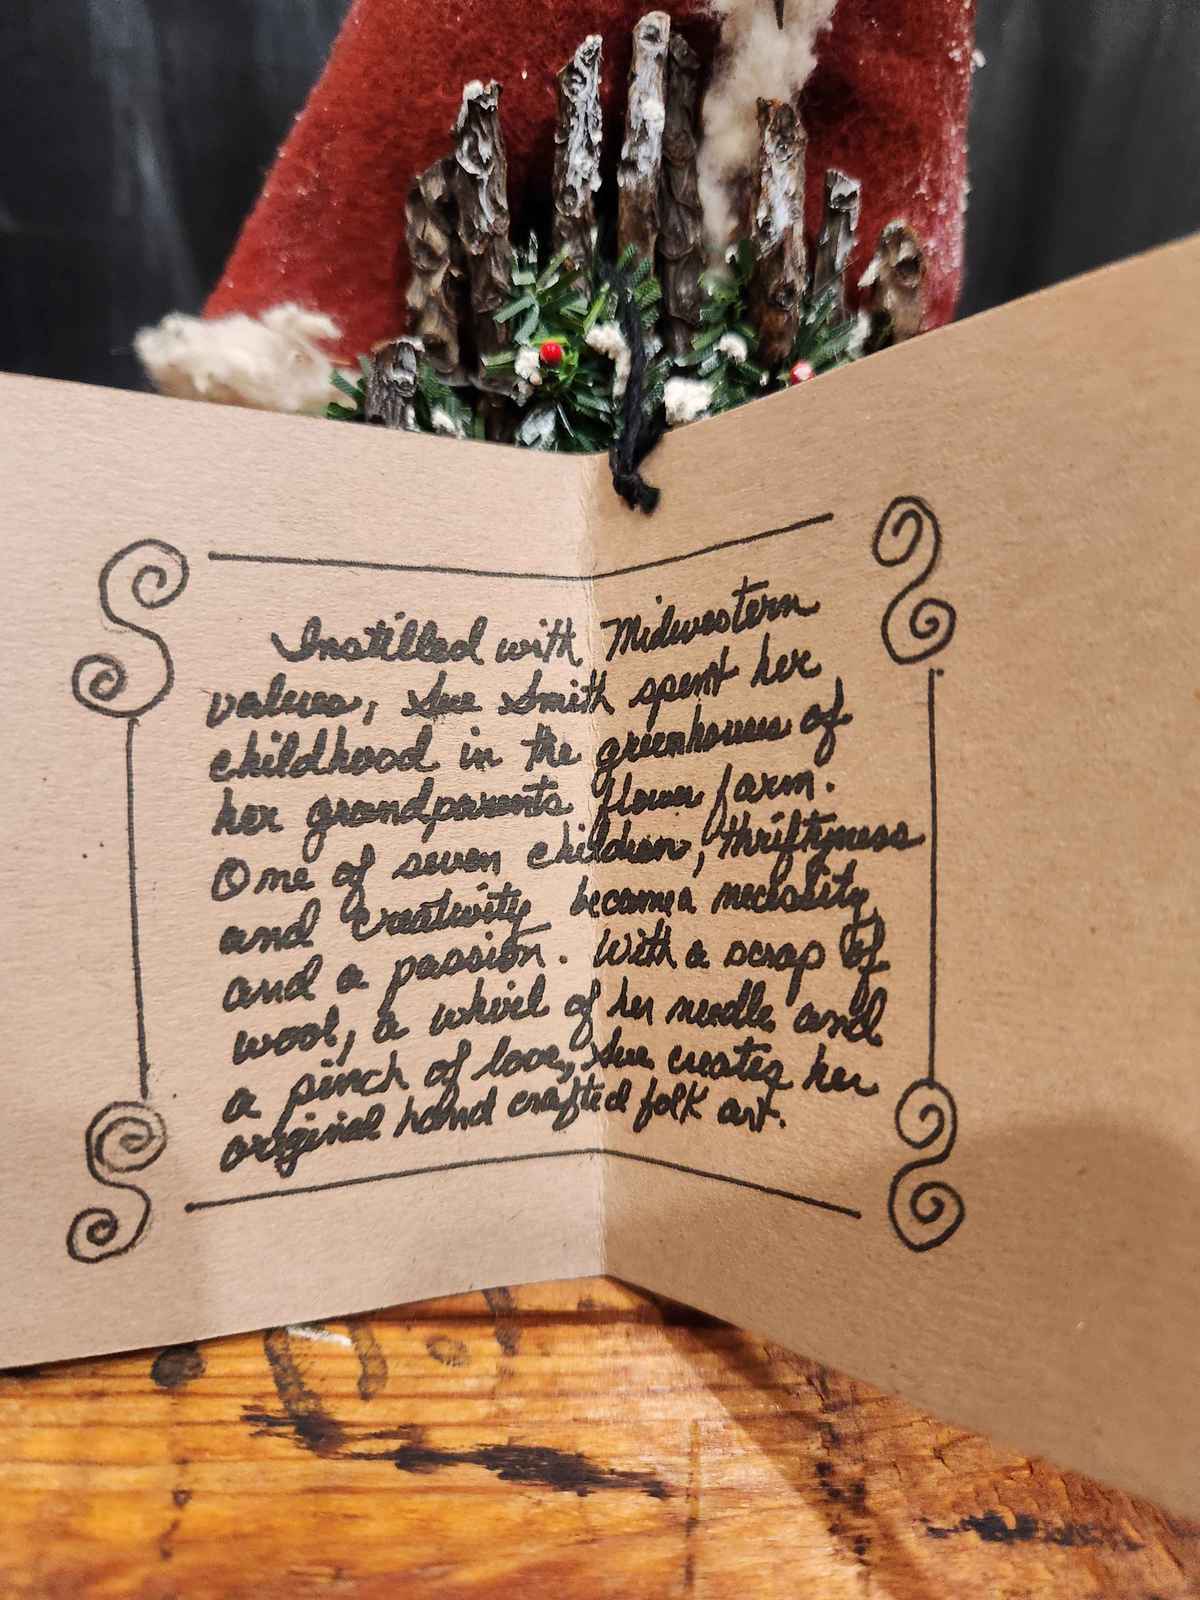 Instilled with Midwestern
values, Sue Smith spent her
childhood in the greenhouses of
her grandparents flower farm.
One of seven children, thriftyness
and creativity became a necessity
and a passion. With a scrap of
wool, a whirl of her needle and
a pinch of love, Sue creates her
original hand crafted folk art.